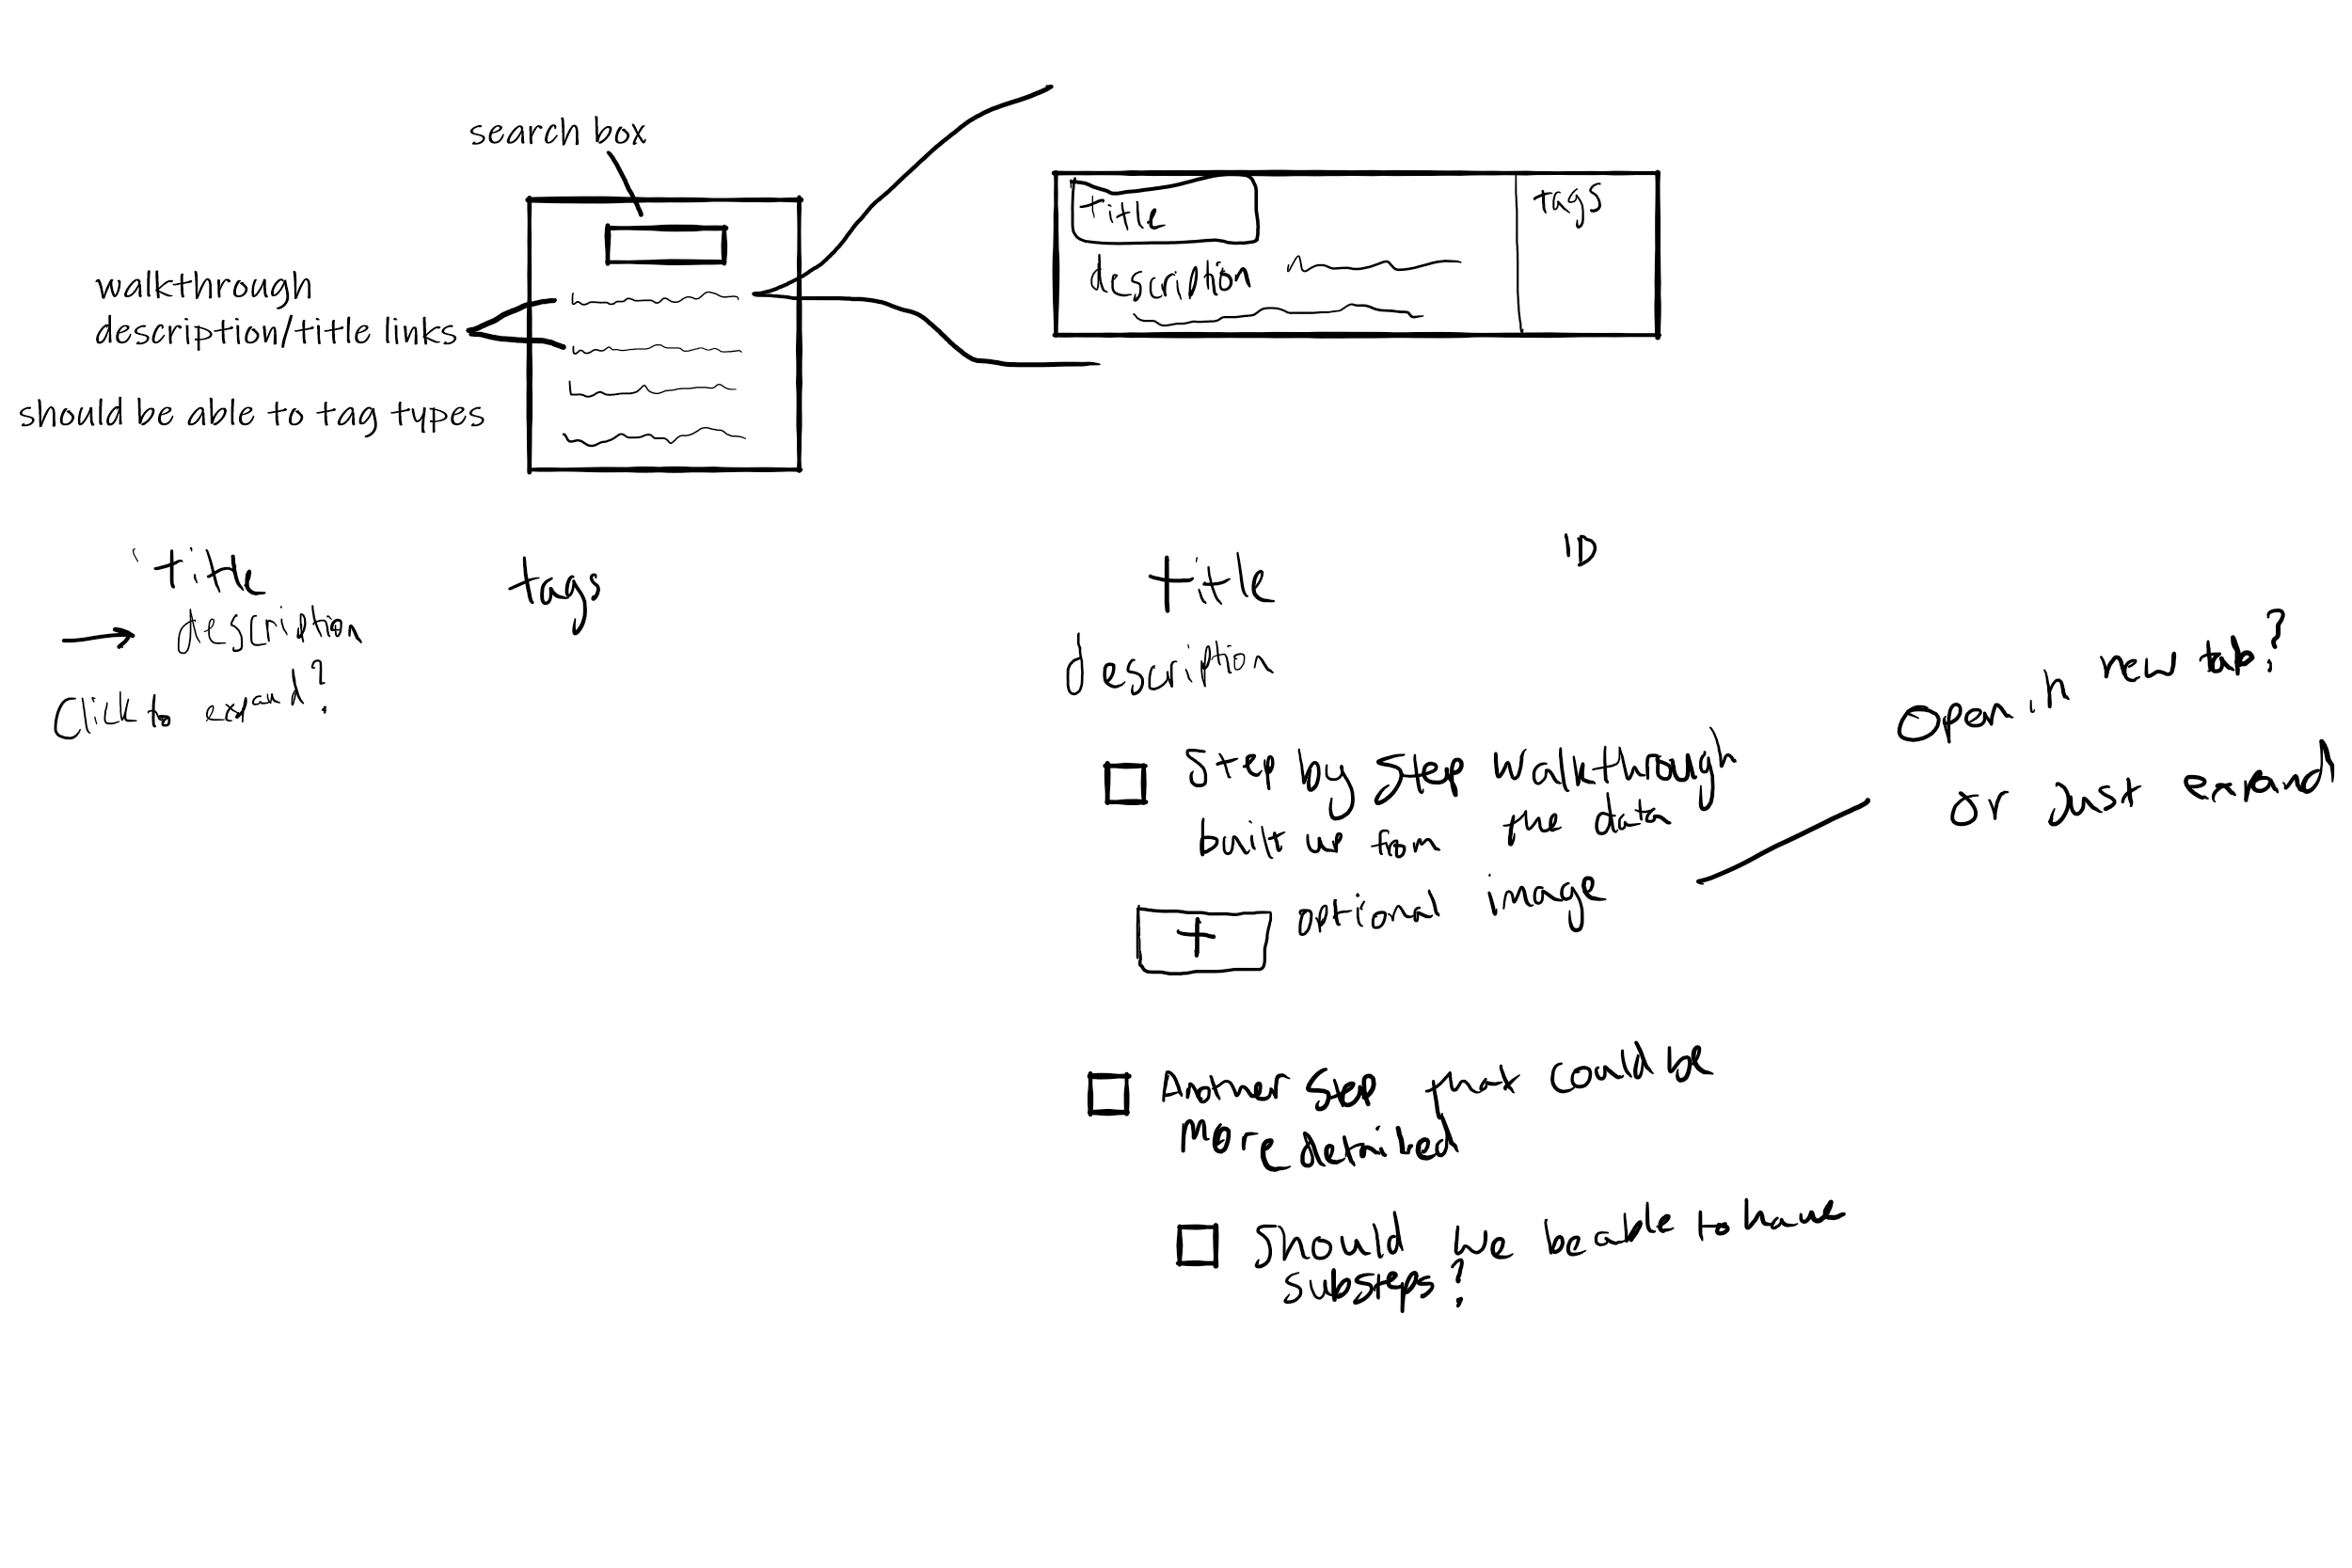 search box
walkthrough
description/title links
should be able to tag types
title
description
tags
title
description
Click to expand?
tags
title
ID
description
Step by step walkthrough
built up from the data
+
optional image
Open in new tab?
or Just expand
Another step that could be
more detailed
Should we be able to have
substeps?